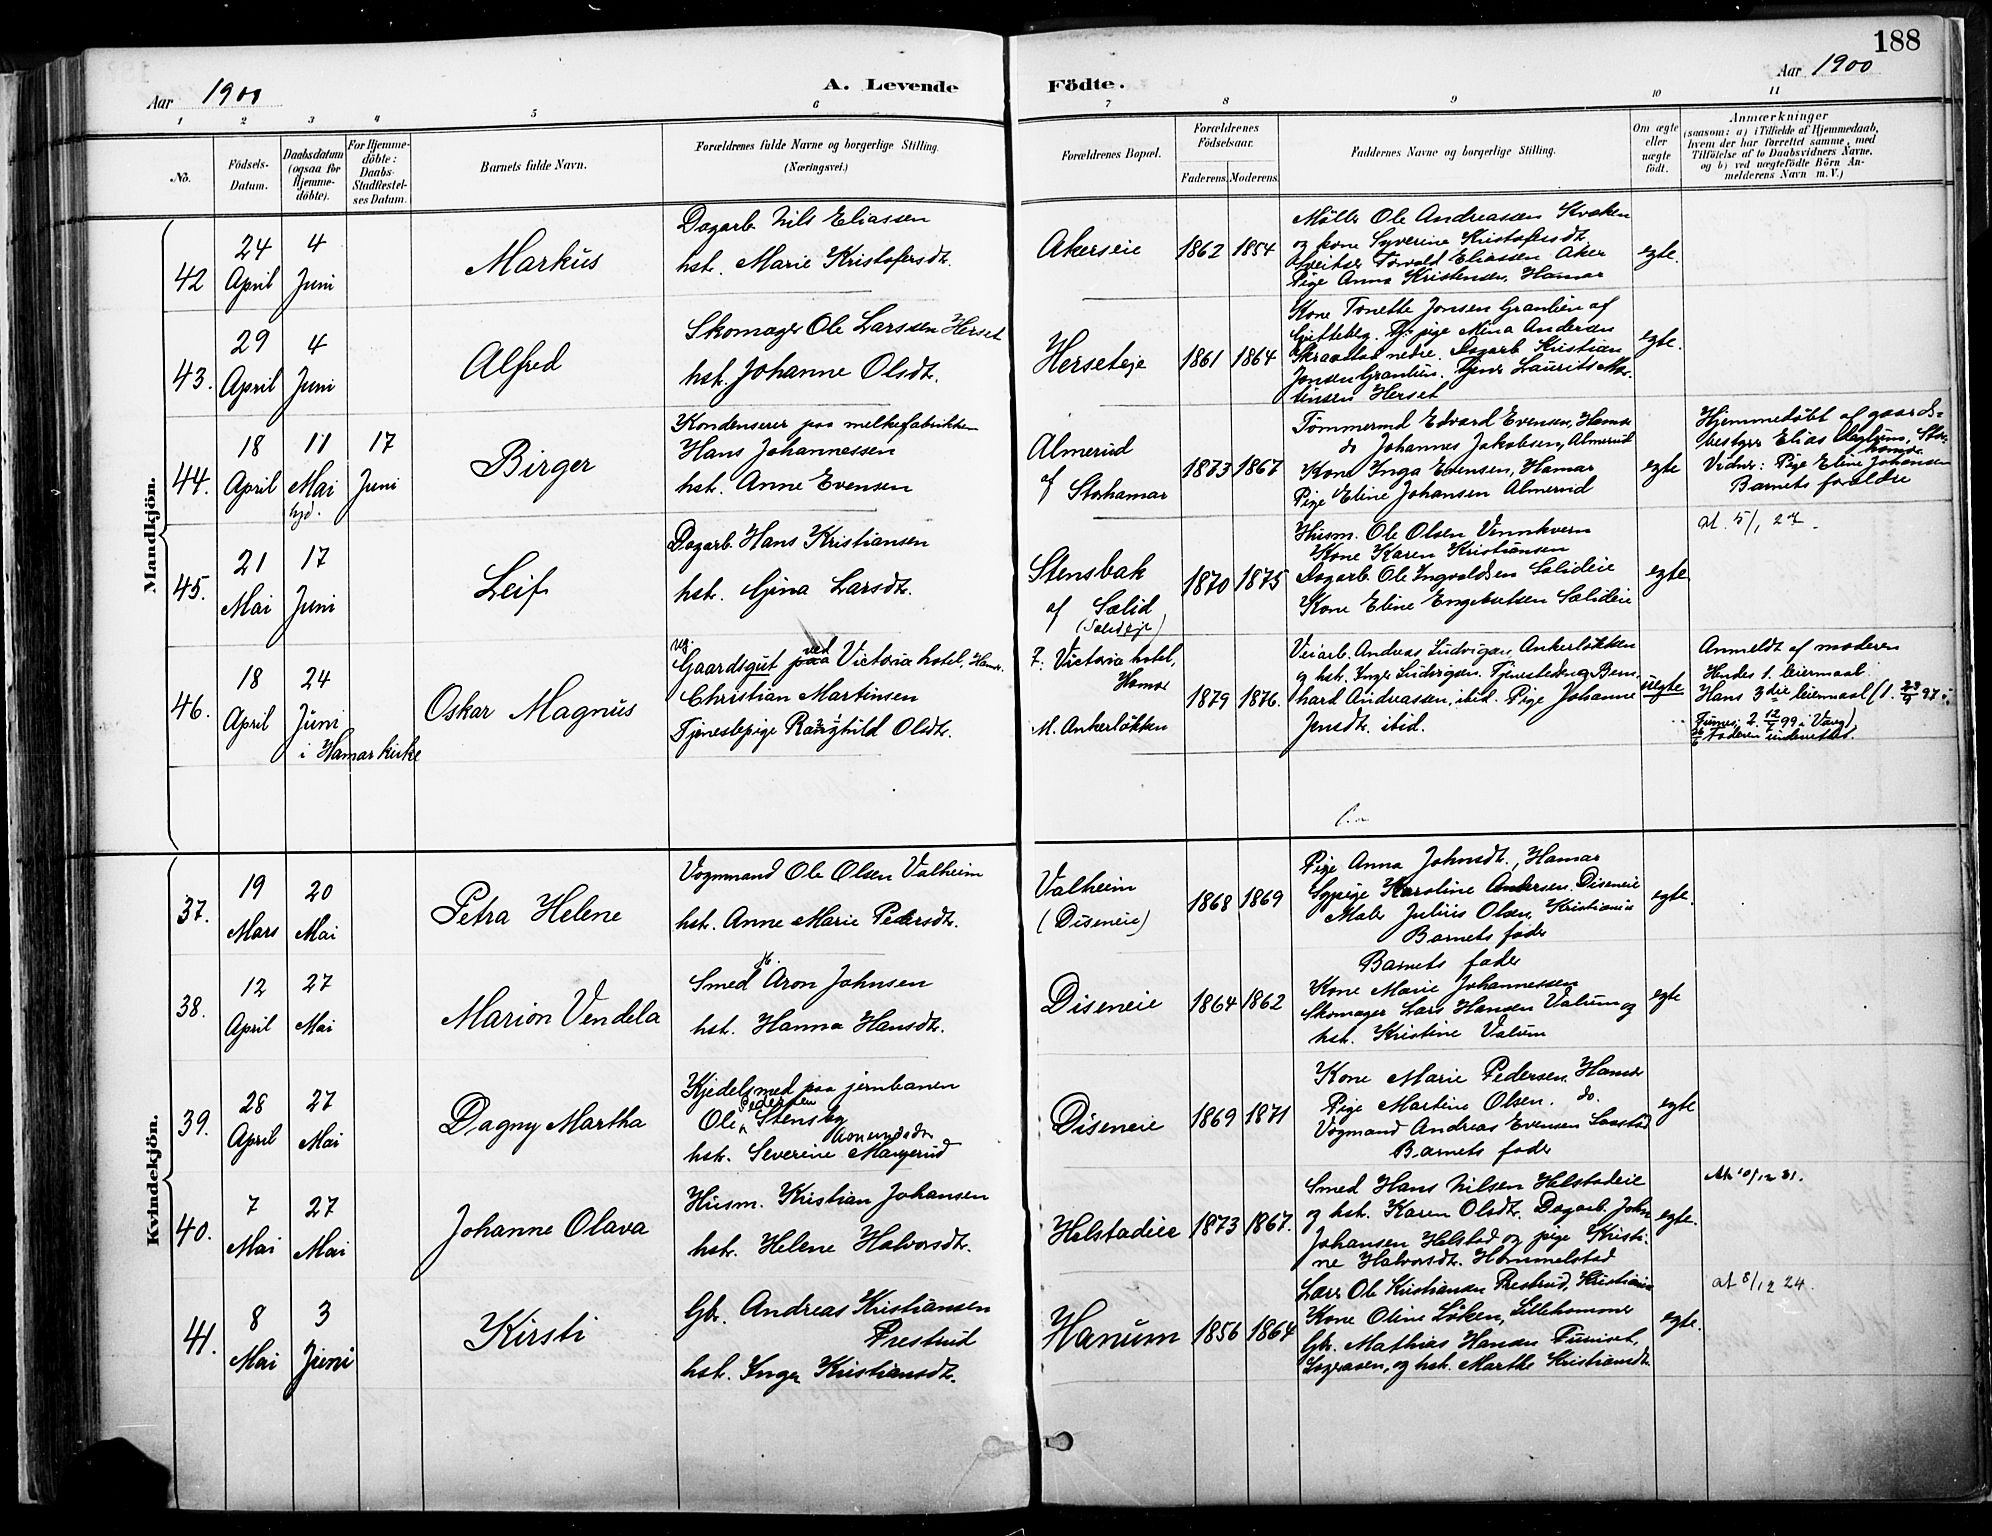 188
Aar 1900
A. Levende
Födte.
Aar 1900
1 2 3 4 5 6 7 8 9 10 11
No.
Födsels-Datum.
Daabsdatum (ogsaa for Hjemme-döbte).
For Hjemme-döbte: Daabs-Stadfæstel-ses Datum.
Barnets fulde Navn.
Forældrenes fulde Navne og borgerlige Stilling. (Næringsvei.)
Forældrenes Bopæl.
Forældrenes Födselsaar.
Faderens. Moderens.
Faddernes Navne og borgerlige Stilling.
Om ægte eller uægte födt.
Anmærkninger
(saasom: a) i Tilfælde af Hjemmedaab,
hvem der har forrettet samme, med
Tilföielse af to Daabsvidners Navne,
og b) ved uægtefödte Börn An-
melderens Navn m. V.)
Mandkjön.
42
24 April
4 Juni
Markus
Dagarb. Nils Eliassen
hst. Marie Kristofersdt.
Akerseie
1862 1854
Möller Ole Andreassen Kvaken
og kone Syverine Kristofersdt.
Sveitser Torvald Eliassen Aker
Pige Anna Kristensen, Hamar
egte.
43.
29 April
4 Juni
Alfred
Skomager Ole Larssen Herset
hst. Johanne Olsdt.
Herseteje
1861 1864
Kone Tonette Jonsen Granlien af
pige Mina Andersen
Skraastad nedre. Dagarb. Kristian
Jonsen Granlien. Laurits Mar-
tinsen Herset
egte.
44.
18 April
11 Mai hjd.
17 Juni
Birger
Kondenserer paa melkefabrikken
Hans Johannessen
hst. Anne Evensen
Almerud
af Storhamar
1873 1867
Tömmermd Edvard Evensen, Hamar
do Johannes Jakobsen, Almerud
Kone Inga Evensen, Hamar
Pige Eline Johansen Almerud
egte
Hjemmedöbt af gaards-
bestyrer Elias, Stor-
hamar
Vidner: Pige Eline Johansen
Barnets forældre
45.
21 Mai
17 Juni
Leif
Dagarb. Hans Kristiansen
hst. Gina Larsdt.
Stensbak
af Sælid
(Sælideje)
1870 1875
Husm. Ole Olsen Vennkvern
Kone Karen Kristiansen
Dagarb. Ole Ingvaldsen Sælideie
Kone Eline Engebretsen Sælideie
egte
at. 5/1 27.
46.
18 April
24 Juni
i Hamar kirke
Oskar Magnus
Ug.
Gaardsgut paa ved Victoria hotel, Hamar.
Christian Martinsen
Tjenestepige Ranghild Olsdt.
F. Victoria hotel,
Hamar
M. Ankerlökken
1879 1876.
Veiarb. Andreas Ludvigsen, Ankerlökken
og hst. Inger Ludvigsen. Tjenestedreng Bern-
hard Andreassen, ibid. Pige Johanne
Jensdt. ibid.
uegte
Anmeldt af moderen
Hendes 1. leiermaal
Hans 3die leiermaal (1. 23/4 97 i
Furnes, 2. 12/7 99 i Vang).
26/6 Faderen underrettet.
Kvindekjön.
37.
19 Mars
20 Mai
Petra Helene
Vognmand Ole Olsen Valheim
hst. Anne Marie Pedersdt.
Valheim
(Diseneie)
1868 1869
Pige Anna Johnsdt., Hamar
Sypige Karoline Andersen Diseneie
Maler Julius Olsen, Kristiania
Barnets fader
egte.
38.
12 April
27 Mai
Marion Vendela
Smed Aron Johnsen
hst. Hanna Hansdt.
Diseneie
1864 1862
Barnets fader
Kone Marie Johannessen
Skomager Lars Hansen Valum og
hst. Kristine Valum
egte
39.
28 April
27 Mai
Dagny Martha
Kjedelsmed paa jernbanen
Ole Pedersen Stensby
hst. Severine Mangerud
Diseneie
1869 1871
Kone Marie Pedersen, Hamar
Pige Martine Olsen. do.
Vogmand Andreas Evensen Saastad
Barnets fader
egte
40.
7 Mai
27 Mai
Johanne Olava
Husm. Kristian Johansen
hst. Helene Halvorsdt.
Helstadeie
1873 1867.
Smed Hans Nilsen Helstadeie
og hst. Karen Olsdt. Dagarb. John
Johansen Helstad og pige Kristi-
ne Halvorsdt. Hommelstad
egte.
At. 10/12 31.
41.
8 Mai
3 Juni
Kirsti
Gbr. Andreas Kristiansen
Prestrud
hst. Inger Kristiansdt.
Hanum
1856 1864
Lærer Ole Kristiansen Prestrud, Kristiania
Kone Oline Löken, Lillehammer
Gbr. Mathias Hansen
og hst. Marthe Kristiansdt.
egte.
at 8/12 24.